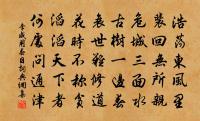 浩蕩東風裏
裴回無所親
危城三面水
古樹一邊春
衰世難修道
花時不稱貧
滔滔天下者
何處問通津
李咸用春日詞典網集